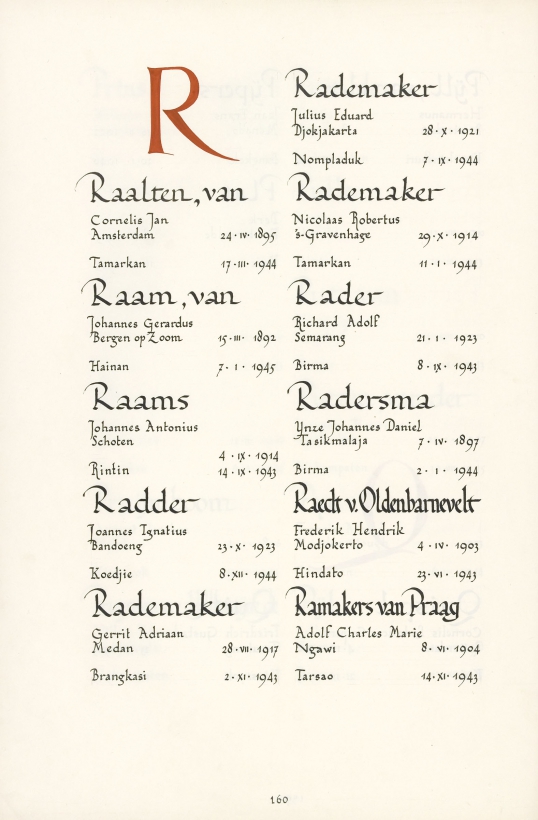 R
Raalten, van
Cornelis Jan
Amsterdam 24·IV·1895
Tamarkan 17·III·1944
Raam, van
Johannes Gerardus
Bergen op Zoom 15·III·1892
Hainan 7·I·1945
Raams
Johannes Antonius
Schoten
4·IX·1914
Rintin 14·IX·1943
Radder
Joannes Ignatius
Bandoeng 23·X·1923
Koedjie 8·XII·1944
Rademaker
Gerrit Adriaan
Medan 28·VII·1917
Brangkasi 2·XI·1943
Rademaker
Julius Eduard
Djokjakarta 28·X·1921
Nompladuk 7·IX·1944
Rademaker
Nicolaas Robertus
's-Gravenhage 29·X·1914
Tamarkan 11·I·1944
Rader
Richard Adolf
Semarang 21·I·1923
Birma 8·IX·1943
Radersma
Ynze Johannes Daniel
Tasikmalaja 7·IV·1897
Birma 2·I·1944
Raedt v. Oldenbarnevelt
Frederik Hendrik
Modjokerto 4·IV·1903
Hindato 23·VI·1943
Ramakers van Praag
Adolf Charles Marie
Ngawi 8·VI·1904
Tarsao 14·XI·1943
160